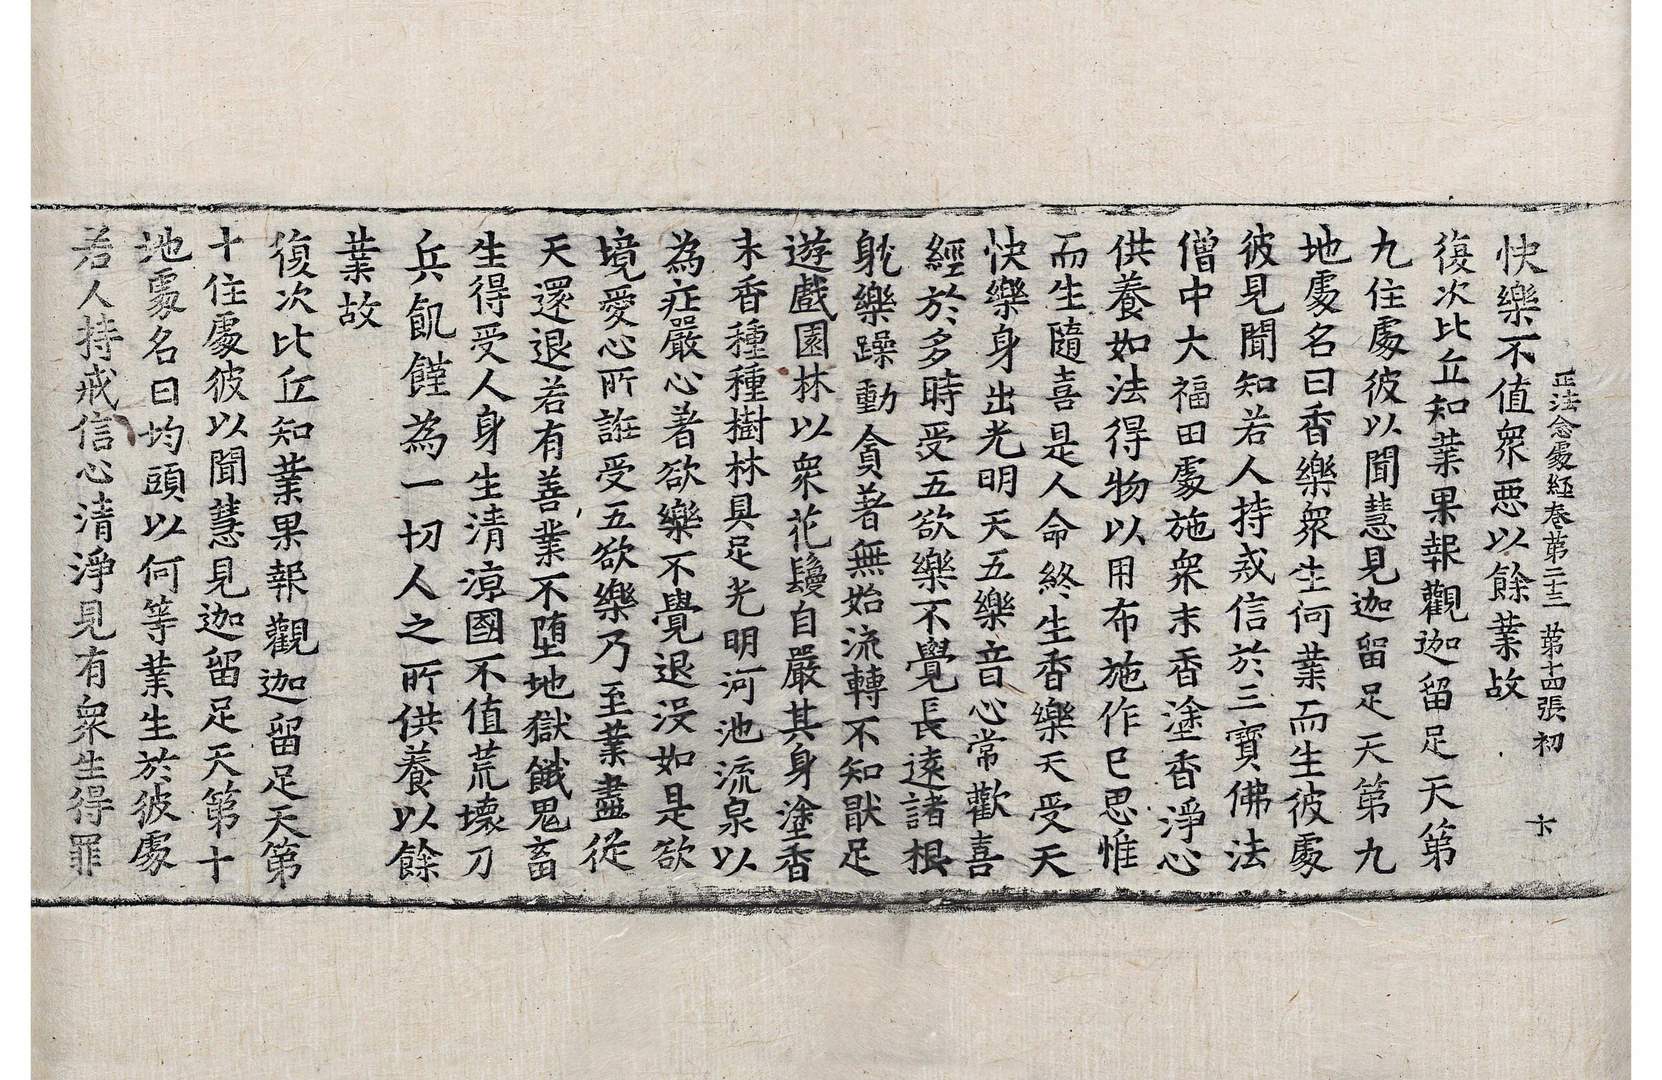 正法念處經卷第二十三 第十四張 初
快樂不值衆惡以餘業故
復次比丘知業果報觀迦留足天第
九住處彼以聞慧見迦留足天第九
地處名曰香樂衆生何業而生彼處
彼見聞知若人持戒信於三寶佛法
僧中大福田處施衆末香塗香淨心
供養如法得物以用布施作已思惟
而生隨喜是人命終生香樂天受天
快樂身出光明天五樂音心常歡喜
經於多時受五欲樂不覺長遠諸根
躭樂躁動貪著無始流轉不知猒足
遊戲園林以衆花鬘自嚴其身塗香
末香種種樹林具足光明河池流泉以
為莊嚴心著欲樂不覺退沒如是欲
境愛心所誑受五欲樂乃至業盡從
天還退若有善業不墮地獄餓鬼畜
生得受人身生清涼國不值荒壞刀
兵飢饉為一切人之所供養以餘
業故
復次比丘知業果報觀迦留足天第
十住處彼以聞慧見迦留足天第十
地處名曰均頭以何等業生於彼處
若人持戒信心清淨見有衆生得罪